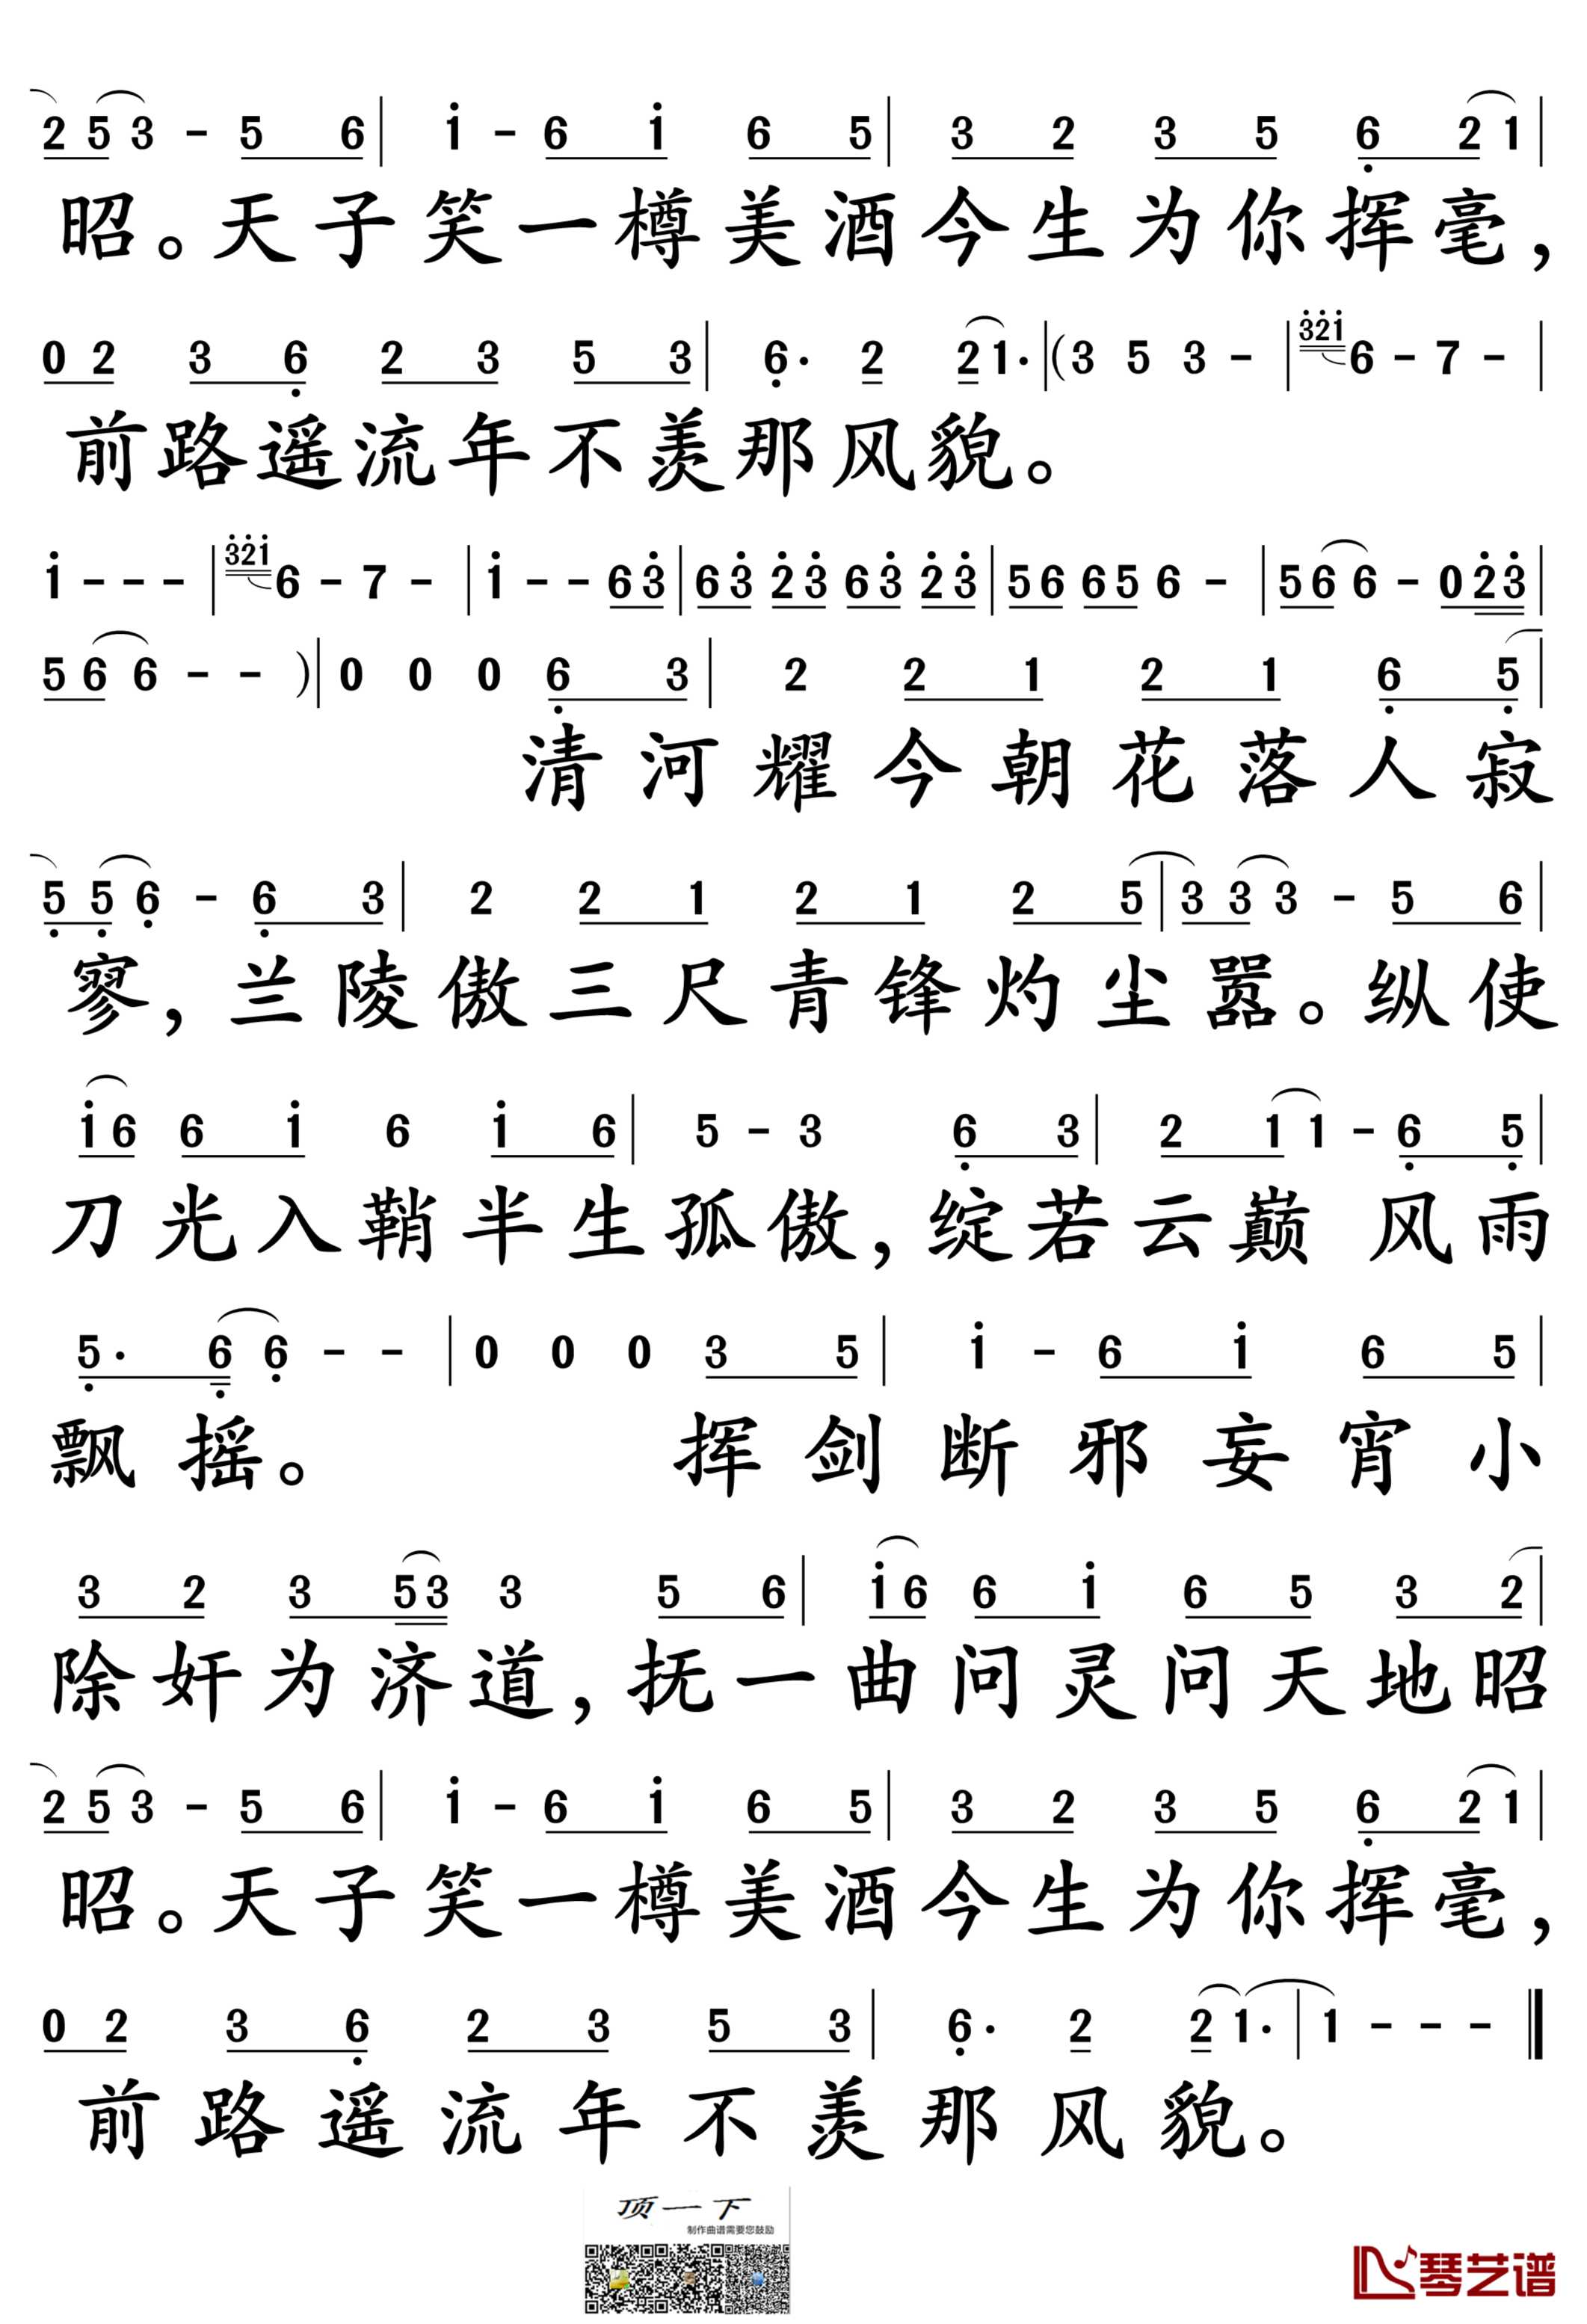 2 5 3 - 5 6 | i - 6 i 6 5 | 3 2 3 5 6 2 1 |
昭。天子笑一樽美酒今生为你挥毫，
0 2 3 6 2 3 5 3 | 6· 2 2 1· | (3 5 3 - | 321 6 - 7 - |
前路遥流年不羡那风貌。
i - - - | 321 6 - 7 - | i - - 6 3 | 6 3 2 3 6 3 2 3 | 5 6 6 5 6 - | 5 6 6 - 0 2 3 |
5 6 6 - - ) | 0 0 0 6 3 | 2 2 1 2 1 6 5 |
清河耀今朝花落人寂
5 5 6 - 6 3 | 2 2 1 2 1 2 5 | 3 3 3 - 5 6 |
寥，兰陵傲三尺青锋灼尘嚣。纵使
i 6 6 i 6 i 6 | 5 - 3 6 3 | 2 1 1 - 6 5 |
刀光入鞘半生孤傲，绽若云巅 风雨
5· 6 6 - - | 0 0 0 3 5 | i - 6 i 6 5 |
飘摇。 挥剑断邪妄宵小
3 2 3 5 3 3 5 6 | i 6 6 i 6 5 3 2 |
除奸为济道，抚一曲问灵问天地昭
2 5 3 - 5 6 | i - 6 i 6 5 | 3 2 3 5 6 2 1 |
昭。天子笑一樽美酒今生为你挥毫，
0 2 3 6 2 3 5 3 | 6· 2 2 1· | 1 - - - ‖
前路遥流年不羡那风貌。
顶一下
制作曲谱需要您鼓励
琴艺谱